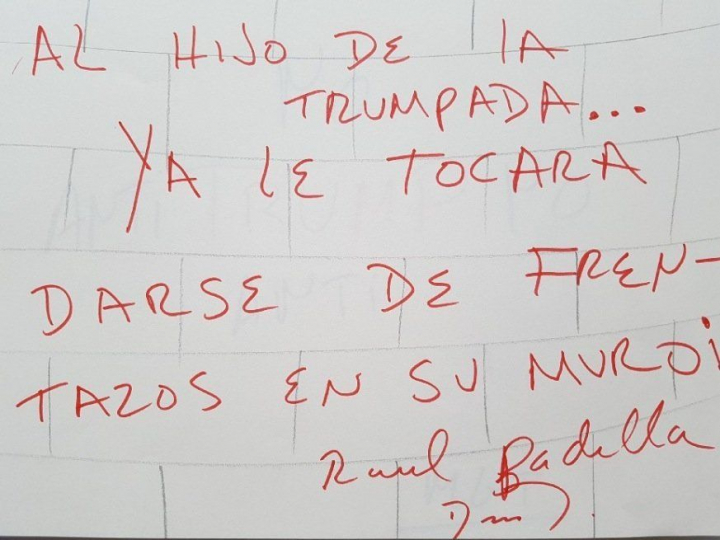 AL HIJO DE LA
TRUMPADA...
YA LE TOCARA
DARSE DE FREN-
TAZOS EN SU MURO¡
Raul Padilla